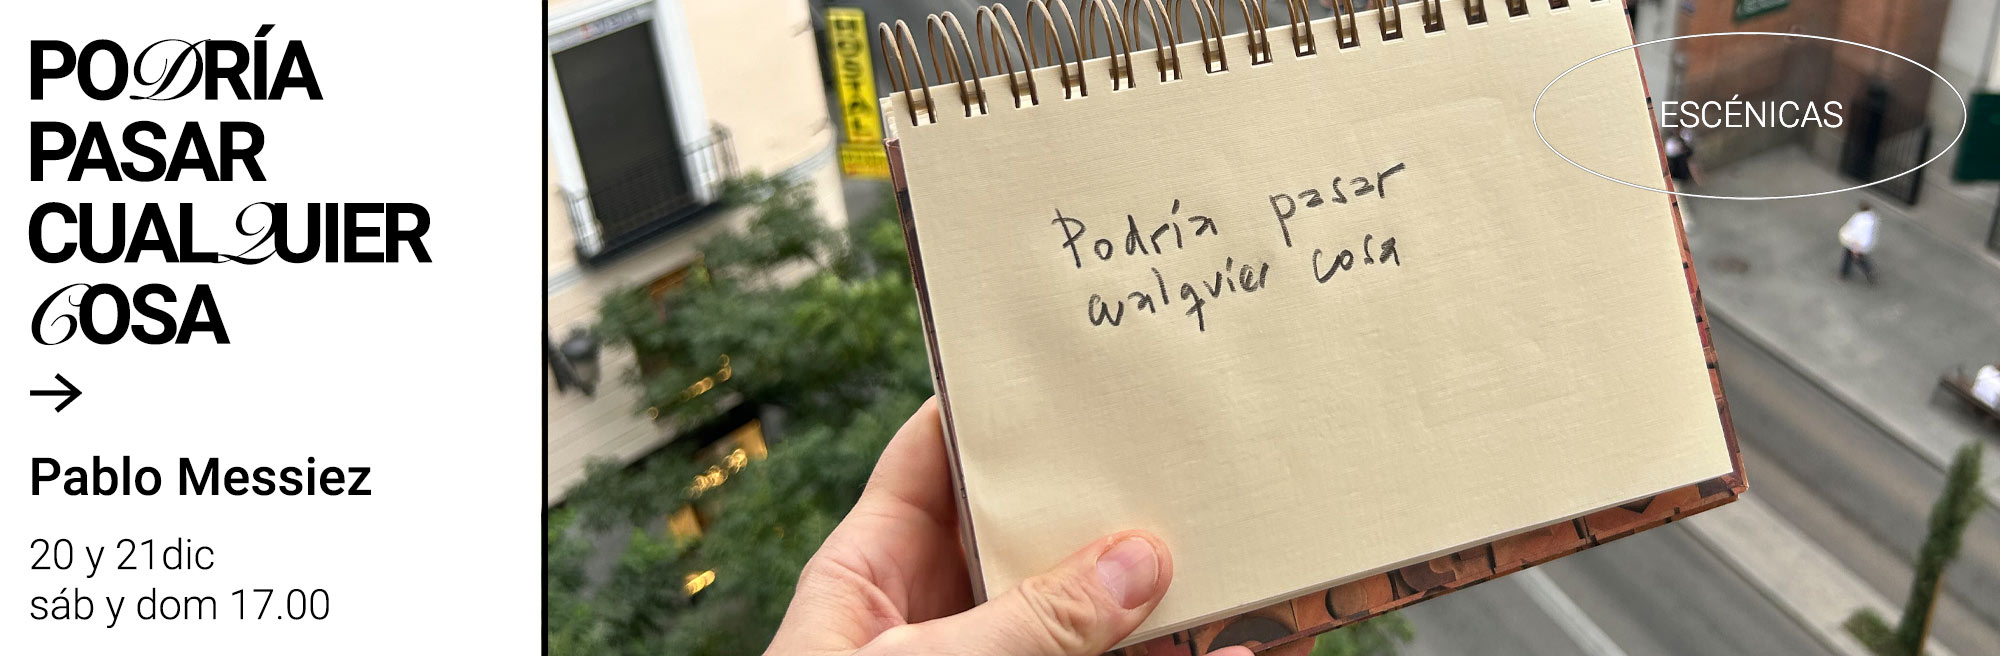 PODRÍA
PASAR
CUALQUIER
COSA
→
Pablo Messiez
20 y 21dic
sáb y dom 17.00
HOSTAL
Podría pasar
cualquier cosa
ESCÉNICAS